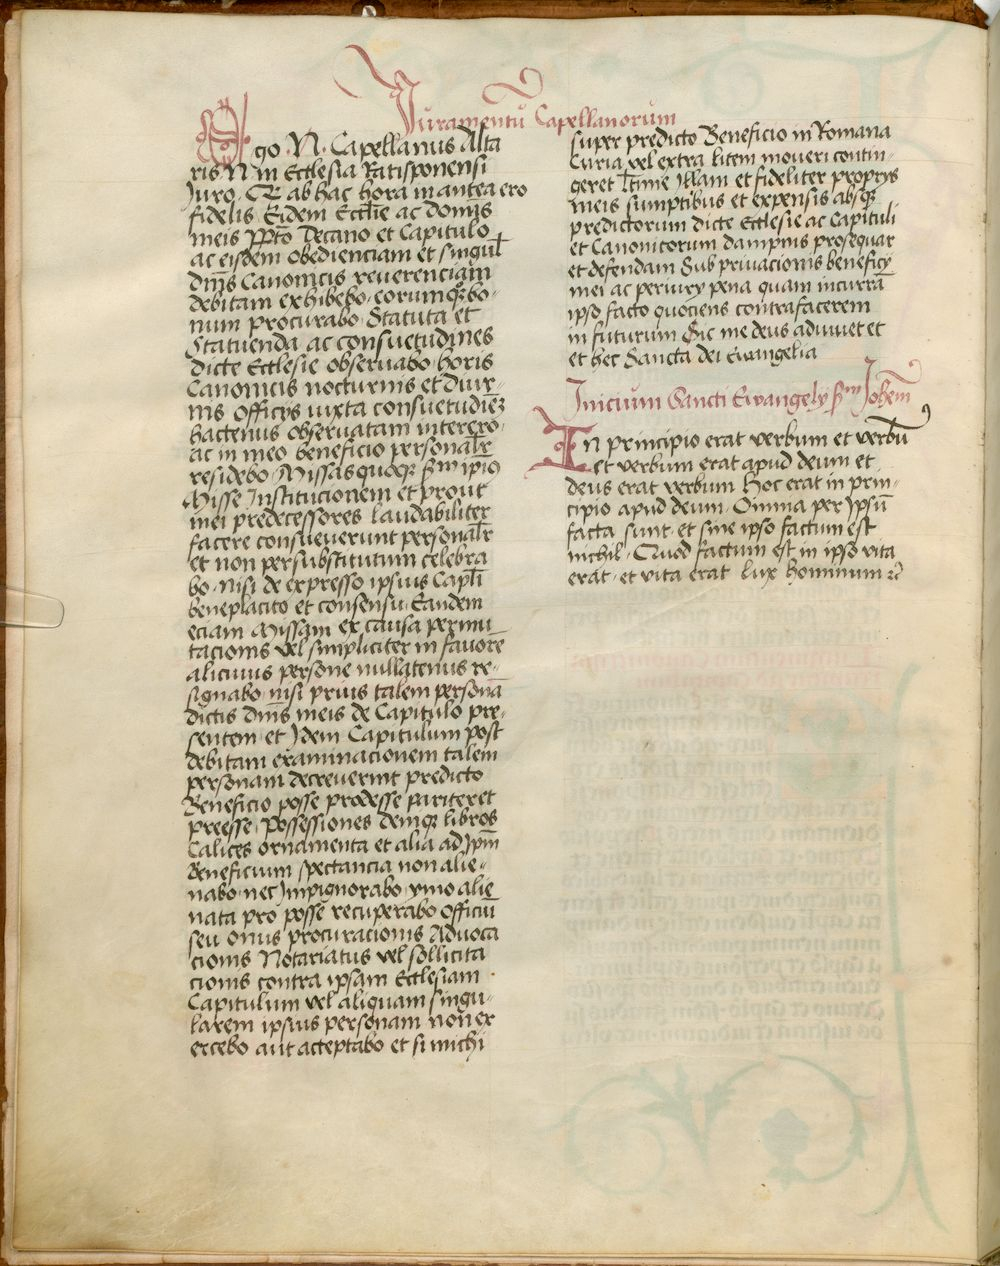 Juramentū Capellanorum
Ego .N. Capellanus Alta
ris N in Ecclesia Ratisponensi
Juro. Qƺ ab hac hora in antea ero
fidelis Eidem Eccl̄ie ac domīs
meis Pp̄to Decano et Capitulo
ac eisdem obedienciam et singul̄
dn̄is Canonicis reuerenciam
debitam exhibebo. eorumqƺ bo-
num procurabo Statuta et
Statuenda ac consuetudines
dicte Ecclesie obseruabo horis
Canonicis nocturnis et diur-
nis officys iuxta consuetudinē
hactenus obseruatam interero
ac in meo beneficio personalr̄
residebo Missas quoqƺ scd̄m ipiꝰ
Misse Institucionem et prout
mei predecessores laudabiliter
facere consueuerunt personalr̄
et non per substitutum celebra
bo. nisi de expresso ipsius Capl̄i
beneplacito et consensu Eandem
eciam Missam ex causa permu
tacionis vel simpliciter in fauorē
alicuius persone nullatenus re-
signabo nisi prius talem personā
dictis dn̄is meis de Capitulo pre-
sentem et Idem Capitulum post
debitam examinacionem talem
personam decreuerint predicto
Beneficio posse prodesse pariter et
preesse. Possessiones deniqƺ libros
Calices ornamenta et alia ad ip̄m
Beneficium spectancia non alie-
nabo nec Impignorabo ymo alie
nata pro posse recuperabo Officiū
seu onus procuracionis Aduoca
cionis Notariatus vel sollicita
cionis contra ipsam Ecclesiam
Capitulum vel aliquam singu-
larem ipsius personam non ex
ercebo aut acceptabo et si michi
super predicto Beneficio in Romana
Curia vel extra litem moueri contin-
geret l̄time Illam et fideliter proprys
meis sumptibus et expensis absqƺ
predictorum dicte Ecclesie ac Capituli
et Canonicorum dampnis prosequar
et defendam Sub priuacionis beneficy
mei ac periury pena quam incurrā
ipso facto quociens contrafacerem
in futurum Sic me deus adiuuet et
et hec Sancta dei Ewangelia
Inicium Sancti Ewangely scd̄m Joh̄em
In principio erat verbum et verbū
et verbum erat apud deum et
deus erat verbum Hoc erat in prin-
cipio apud deum. Omnia per ipsū
facta sunt et sine ipso factum est
nichil. Quod factum est in ipso vita
erat. et vita erat lux hominum ⁊c̄